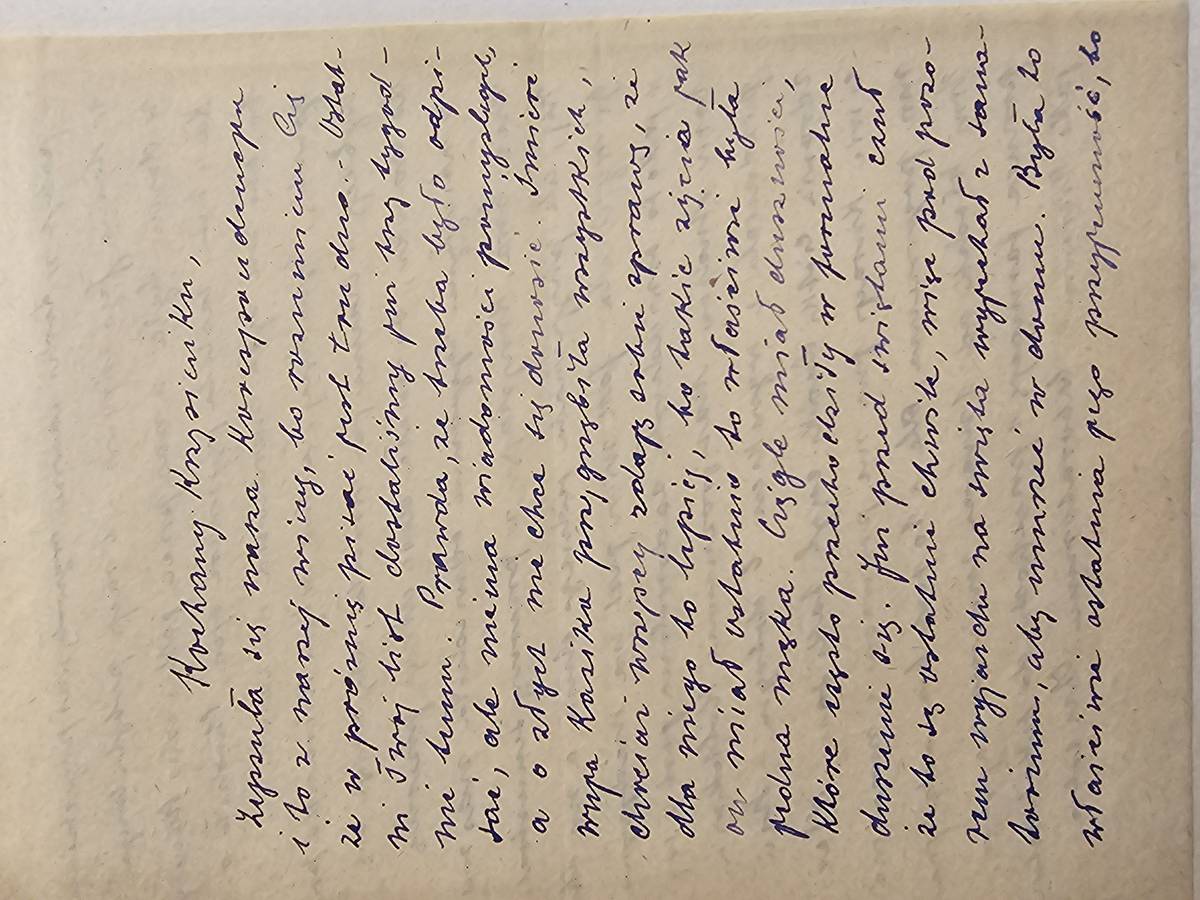 Kochany Krzysieńku,
Zepsuła się nasza korespondencja
i to z naszej winy, bo rozumiem Cię
że w próżnię pisać jest trudno. Ostat-
ni Twój list dostaliśmy już trzy tygod-
nie temu. Prawda, że trzeba było odpi-
sać, ale niema wiadomości pomyślnych,
a o złych nie chce się donosić. Śmierć
wuja Kazika przygnębiła wszystkich,
chociaż wszyscy zdają sobie sprawę, że
dla niego to lepiej, bo takie życie jak
on miał ostatnio to właściwie była
jedna męka. Ciągle miał duszności,
które często przechodziły w formalne
duszenie się. Już przed świętami czuł
że to są ostatnie chwile, więc pod pozo-
rem wyjazdu na święta wyjechał z sana-
torium, aby umrzeć w domu. Była to
właściwie ostatnia jego przyjemność, bo